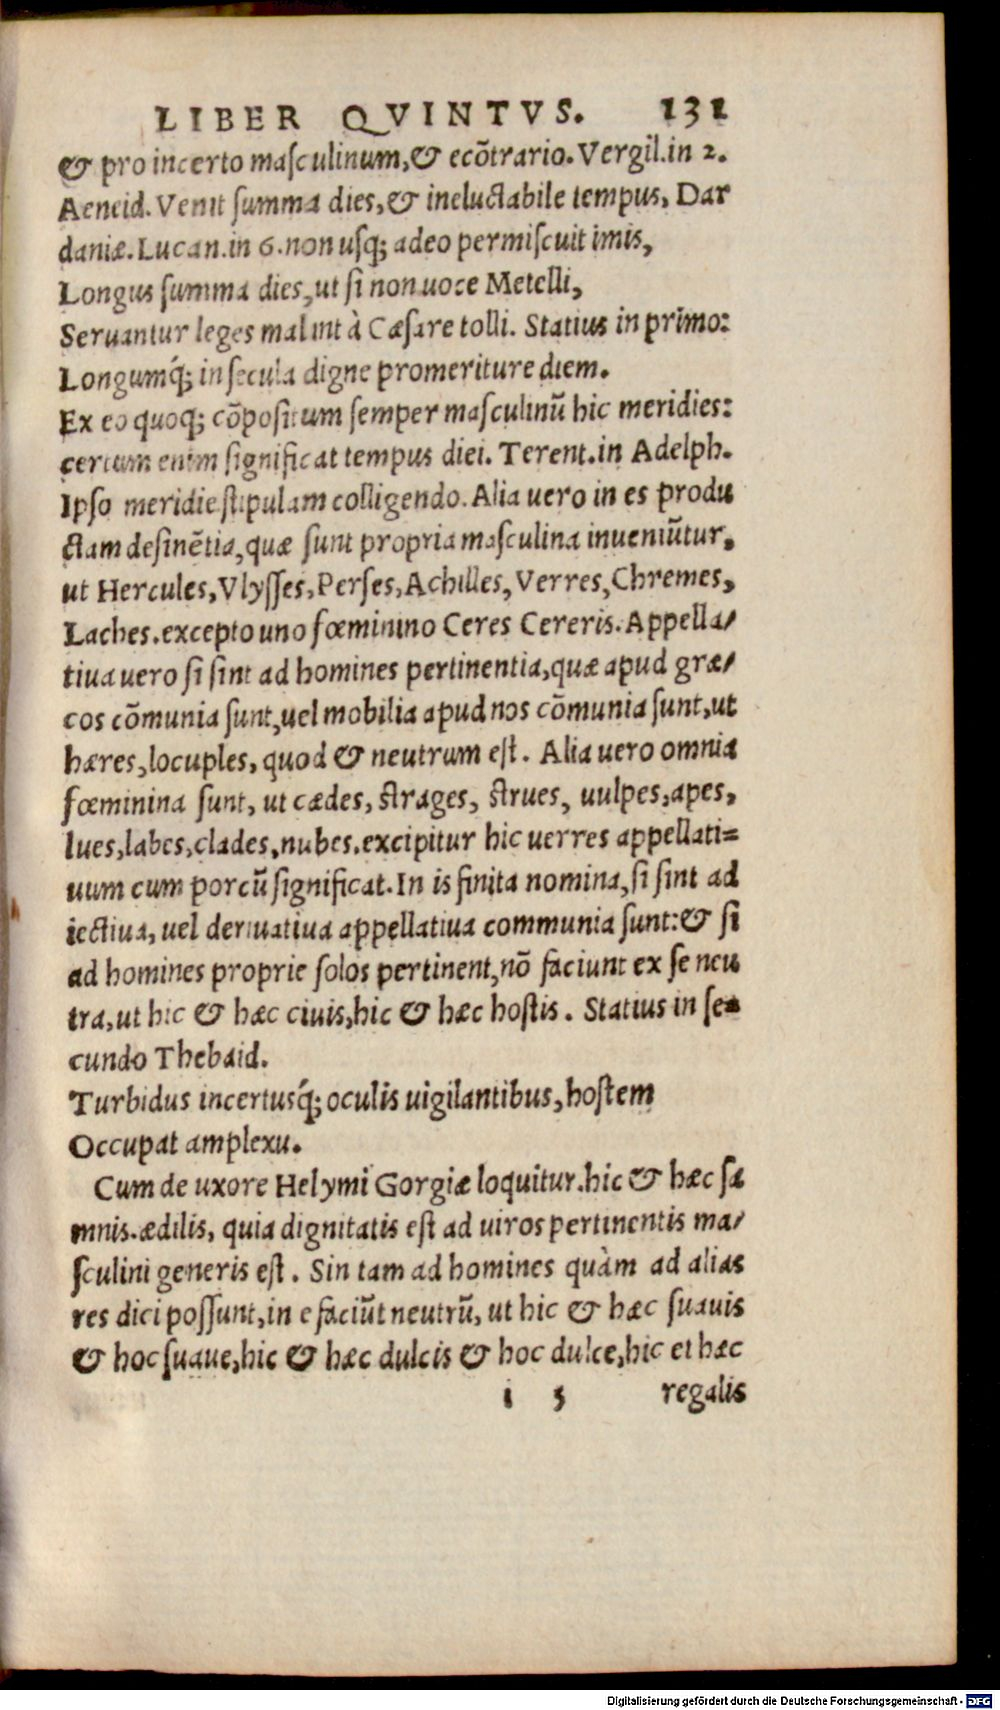 LIBER QVINTVS. 131
& pro incerto masculinum, & ecõtrario. Vergil. in 2.
Aeneid. Venit summa dies, & ineluctabile tempus, Dar
daniæ. Lucan. in 6. non usq; adeo permiscuit imis,
Longus summa dies, ut si non uoce Metelli,
Seruantur leges malint à Cæsare tolli. Statius in primo:
Longumq́; in secula digne promeriture diem.
Ex eo quoq; cõpositum semper masculinũ hic meridies:
certum enim significat tempus diei. Terent. in Adelph.
Ipso meridie stipulam colligendo. Alia uero in es produ
ctam desinẽtia, quæ sunt propria masculina inueniũtur,
ut Hercules, Vlysses, Perses, Achilles, Verres, Chremes,
Laches. excepto uno fœminino Ceres Cereris. Appella/
tiua uero si sint ad homines pertinentia, quæ apud græ/
cos cõmunia sunt, uel mobilia apud nos cõmunia sunt, ut
hæres, locuples, quod & neutrum est. Alia uero omnia
fœminina sunt, ut cædes, strages, strues, uulpes, apes,
lues, labes, clades, nubes. excipitur hic uerres appellati=
uum cum porcũ significat. In is finita nomina, si sint ad
iectiua, uel deriuatiua appellatiua communia sunt: & si
ad homines proprie solos pertinent, nõ faciunt ex se neu
tra, ut hic & hæc ciuis, hic & hæc hostis. Statius in se=
cundo Thebaid.
Turbidus incertusq́; oculis uigilantibus, hostem
Occupat amplexu.
Cum de uxore Helymi Gorgiæ loquitur. hic & hæc sa
mnis. ædilis, quia dignitatis est ad uiros pertinentis ma/
sculini generis est. Sin tam ad homines quàm ad alias
res dici possunt, in e faciũt neutrũ, ut hic & hæc suauis
& hoc suaue, hic & hæc dulcis & hoc dulce, hic et hæc
i 3 regalis
Digitalisierung gefördert durch die Deutsche Forschungsgemeinschaft - DFG